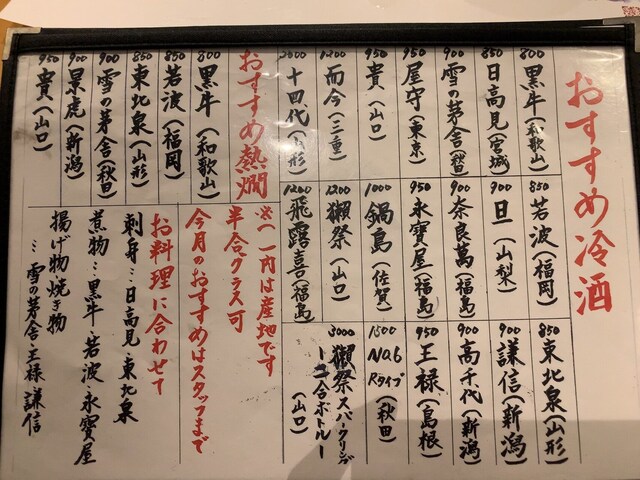 おすすめ冷酒
800 黒牛(和歌山)
850 日高見(宮城)
900 雪の茅舎(秋田)
950 屋守(東京)
950 貴(山口)
1200 而今(三重)
2000 十四代(山形)
850 若波(福岡)
900 旦(山梨)
900 奈良萬(福島)
950 永寶屋(福島)
1000 鍋島(佐賀)
1200 獺祭(山口)
1200 飛露喜(福島)
850 東北泉(山形)
900 謙信(新潟)
900 高千代(新潟)
950 王禄(島根)
1500 No.6 Rタイプ(秋田)
3000 獺祭スパークリング
ー二合ボトルー
(山口)
おすすめ熱燗
800 黒牛(和歌山)
850 若波(福岡)
850 東北泉(山形)
900 雪の茅舎(秋田)
900 景虎(新潟)
950 貴(山口)
※( )内は産地です
半合グラス可
今月のおすすめはスタッフまで
お料理に合わせて
刺身…日高見・東北泉
煮物…黒牛・若波・永寶屋
揚げ物焼き物
…雪の茅舎・王禄・謙信